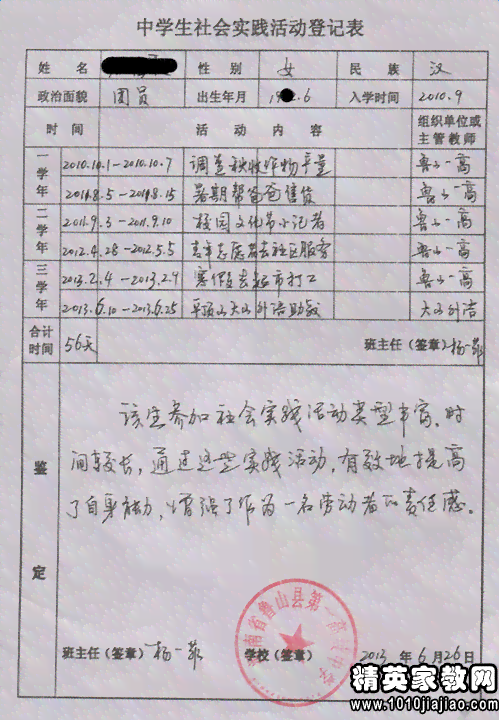 中学生社会实践活动登记表
姓 名 性 别 女 民 族 汉
政治面貌 团员 出生年月 入学时间 2010.9
时 间 活 动 内 容 组织单位或主管教师
一学年 2010.10.1-2010.10.7 调查秋收作物产量 鲁山一高
2011.8.5-2011.8.15 暑期帮爸爸售货 鲁山一高
二学年 2011.9.3-2011.9.10 校园文化节小记者 鲁山一高
2012.4.28-2012.5.5 青年志愿者去社区服务 鲁山一高
三学年 2013.2.4-2013.2.9 寒假去超市打工 鲁山一高
2013.6.10-2013.6.25 平顶山大山外语助教 大山外语
合计时间 56天 班主任(签章) 杨一菲
鉴定
该生参加社会实践活动类型丰富,时
间较长,通过这些实践活动,有效地提高
了自身能力,增强了作为一名劳动者的责任感。
班主任(签章) 杨一菲 学校(签章) 2013 年 6 月 26 日
南省鲁山县第一高级中学
精英家教网
www.1010jiajiao.com